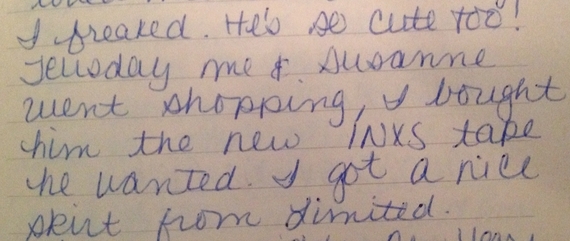 I freaked. He's so cute too!
Teusday me & Susanne
went shopping, I bought
him the new INXS tape
he wanted. I got a nice
skirt from Limited.